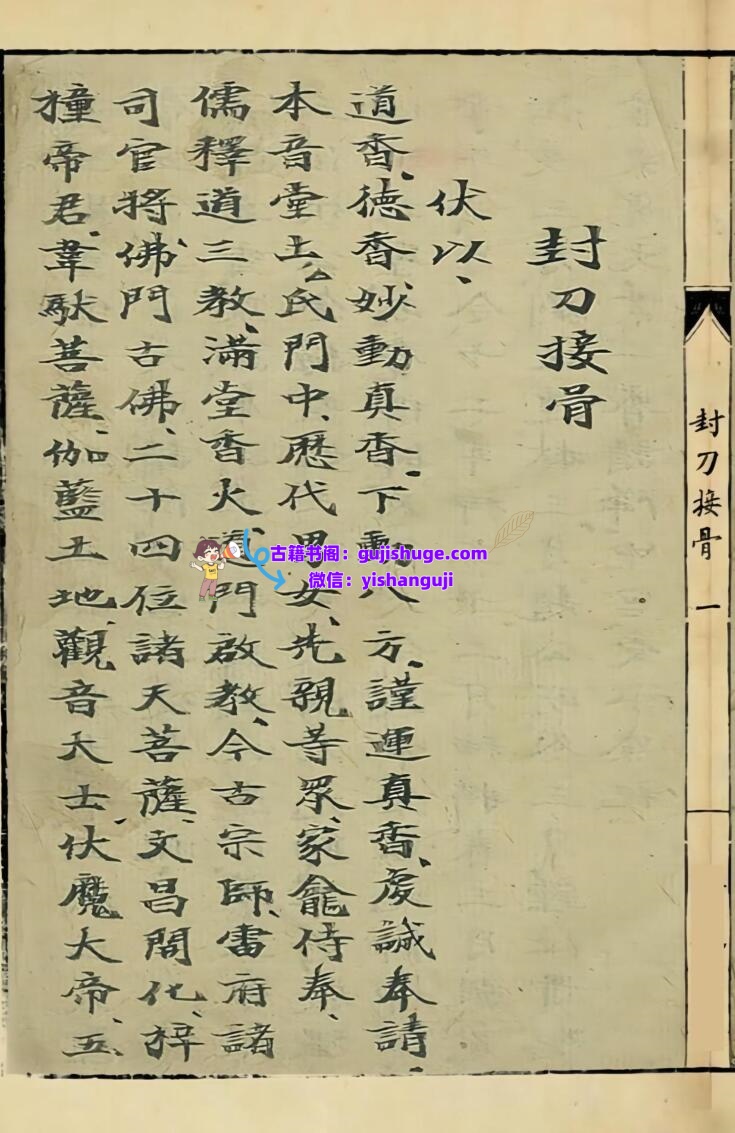 封刀接骨
伏以、
道香、德香、妙動真香、下動八方、謹運真香、虔誠奉請、
本音堂上厶氏門中、歷代男女、先親等眾、家龕侍奉、
儒釋道三教、滿堂香火、道門啟教、今古宗師、雷府諸
司官將、佛門古佛、二十四位諸天菩薩、文昌開化、梓
橦帝君、韋馱菩薩、伽藍土地、觀音大士、伏魔大帝、五
封刀接骨 一
古籍书阁：gujishuge.com
微信：yishanguji